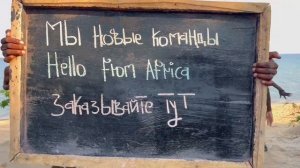 Мы новые команды
Hello from Africa
Заказывайте тут